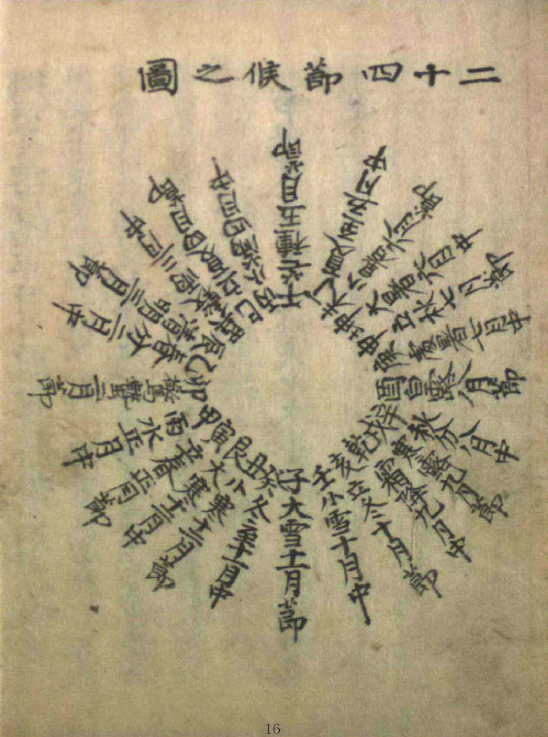 二十四節候之圖
子大雪十一月節
癸冬至十一月中
丑小寒十二月節
艮大寒十二月中
寅立春正月節
甲雨水正月中
卯驚蟄二月節
乙春分二月中
辰清明三月節
巽穀雨三月中
巳立夏四月節
丙小滿四月中
午芒種五月節
丁夏至五月中
未小暑六月節
坤大暑六月中
申立秋七月節
庚處暑七月中
酉白露八月節
辛秋分八月中
戌寒露九月節
乾霜降九月中
亥立冬十月節
壬小雪十月中
16